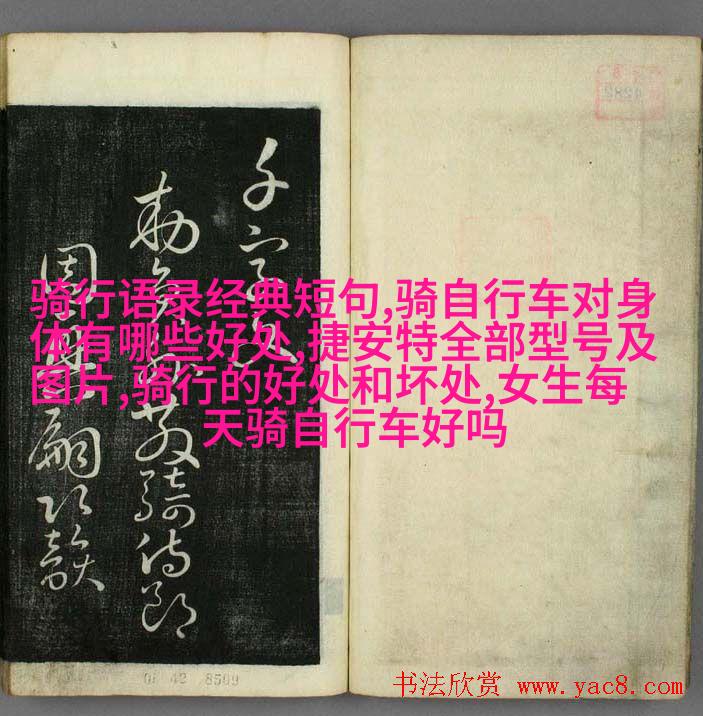 千字文
勅員外散騎侍郎
周興嗣次韻
骑行语录经典短句,骑自行车对身
体有哪些好处,捷安特全部型号及
图片,骑行的好处和坏处,女生每
天骑自行车好吗
42 8509
书法欣赏 www.yac8.com